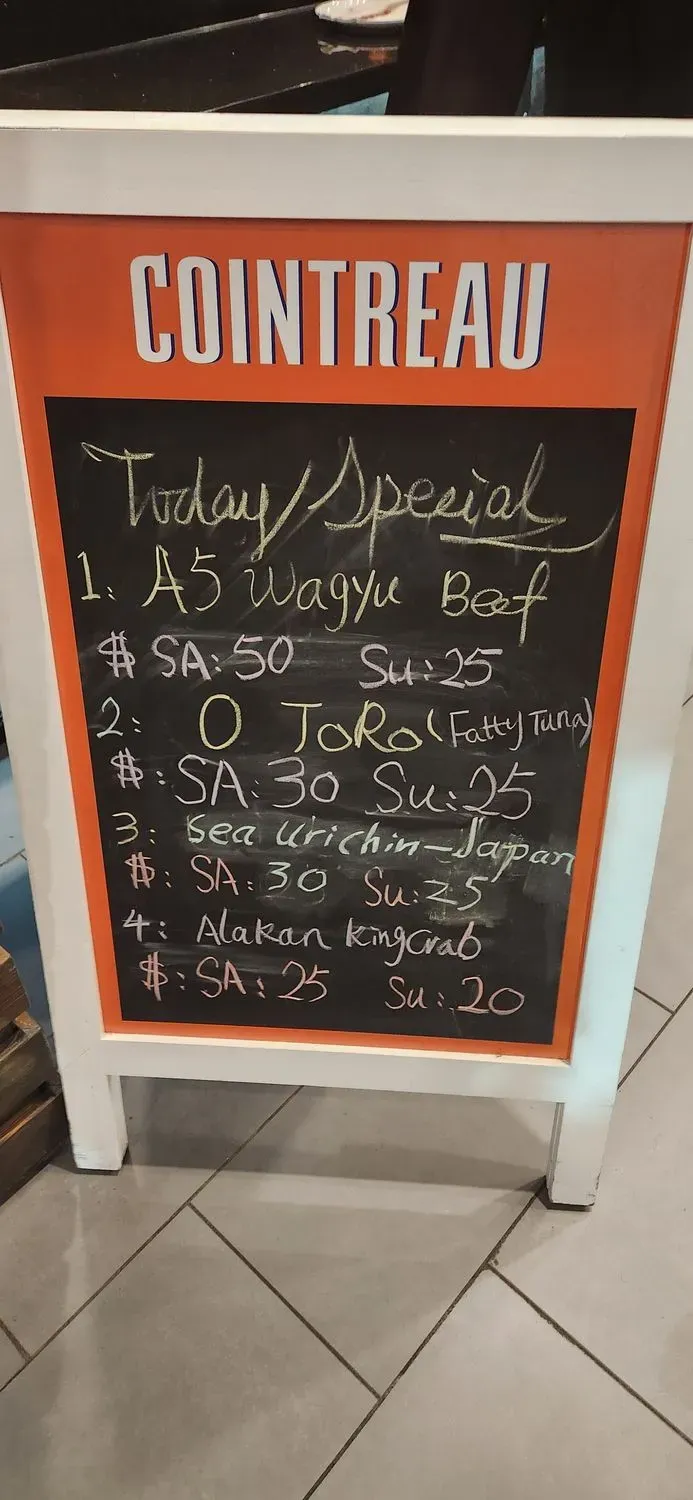 COINTREAU
Today/Special
1: A5 Wagyu Beef
$ SA: 50 Su: 25
2: O ToRo (Fatty Tuna)
$: SA: 30 Su: 25
3: Sea Urichin-Japan
$: SA: 30 Su: 25
4: Alakan KingCrab
$: SA: 25 Su: 20